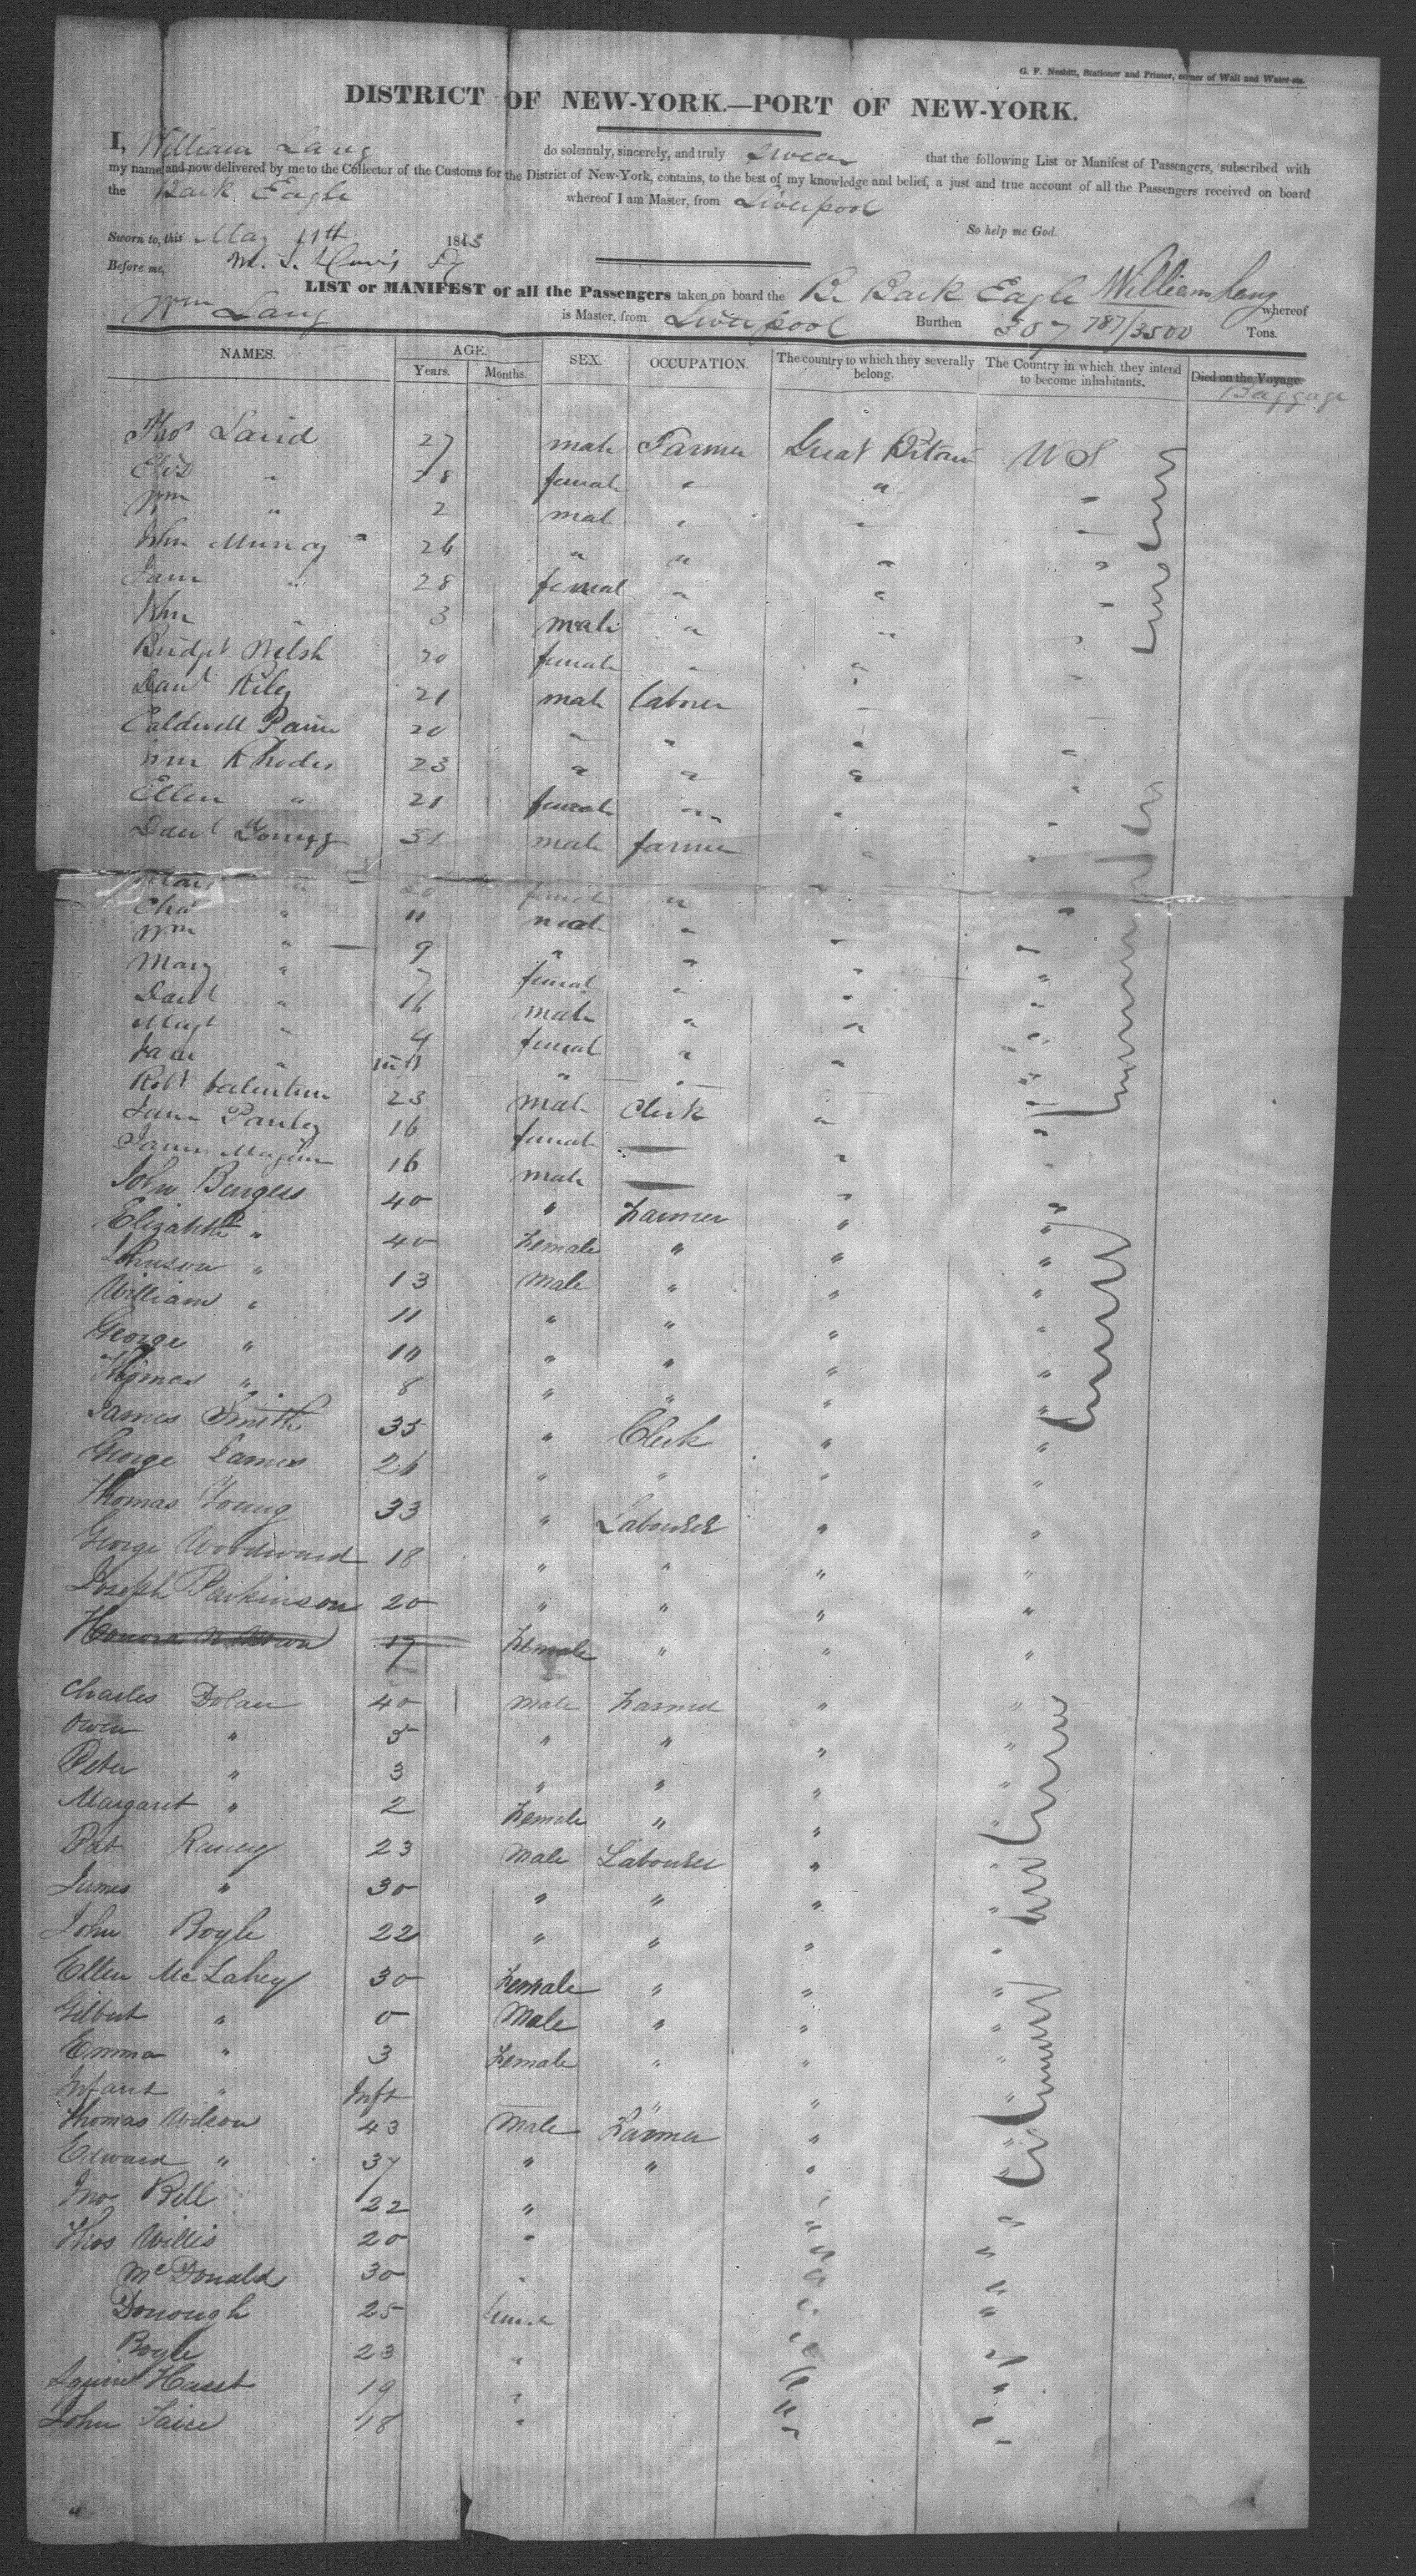 G. F. Nesbitt, Stationer and Printer, corner of Wall and Water-sts.
DISTRICT OF NEW-YORK.—PORT OF NEW-YORK.
I, William Lang do solemnly, sincerely, and truly swear that the following List or Manifest of Passengers, subscribed with
my name, and now delivered by me to the Collector of the Customs for the District of New-York, contains, to the best of my knowledge and belief, a just and true account of all the Passengers received on board
the Bark Eagle whereof I am Master, from Liverpool
So help me God.
Sworn to, this May 11th 184
Before me,
Wm Lang
LIST or MANIFEST of all the Passengers taken on board the Br Bark Eagle William Lang whereof
is Master, from Liverpool Burthen 307 787/3500 Tons.
NAMES. AGE. Years. Months. SEX. OCCUPATION. The country to which they severally belong. The Country in which they intend to become inhabitants. Died on the Voyage.
Baggage
Thos Laird 27 male Farmer Great Britain U S
Eliz " 28 female " " "
Wm " 2 mal " " "
John Murray 26 " " " "
Jane " 28 femal " " "
John " 3 male " " "
Bridget Welsh 20 female " " "
Danl Riley 21 male laborer " "
Caldwell 20 " " " "
Wm Rhodes 23 " " " "
Ellen " 21 female " " "
Danl Young 31 male farmer " "
Mary " 20 femal " "
Chas " 11 mal " " "
Wm " 9 " " " "
Mary " 7 femal " " "
Danl " male " " "
Magt " 4 femal " " "
Jane " inft " " " "
Robt 23 male Clerk " "
Jane 16 female — " "
James 16 male — " "
John Burgess 40 " Farmer " "
Elizabeth " 40 Female " " "
Johnson " 13 Male " " "
William " 11 " " " "
George " 10 " " " "
Thomas " 8 " " " "
James Smith 35 " Clerk " "
George James 26 " " " "
Thomas Young 33 " Labourer " "
George Woodward 18 " " " "
Joseph Parkinson 20 " " " "
Honora 17 Female " " "
Charles Dolan 40 Male Farmer " "
Owen " 5 " " " "
Peter " 3 " " " "
Margaret " 2 Female " " "
Pat 23 Male Labourer " "
James " 30 " " " "
John Boyle 22 " " " "
Ellen McLahey 30 Female " " "
Gilbert " 0 Male " " "
Emma " 3 Female " " "
Infant " Inft " " "
Thomas Wilson 43 Male Farmer " "
Edward " 37 " " " "
Jno Bell 22 " " "
Thos Willis 20 " " "
McDonald 30 " " "
Donough 25 " "
Boyle 23 " " "
Squire 19 " " "
John 18 " " "